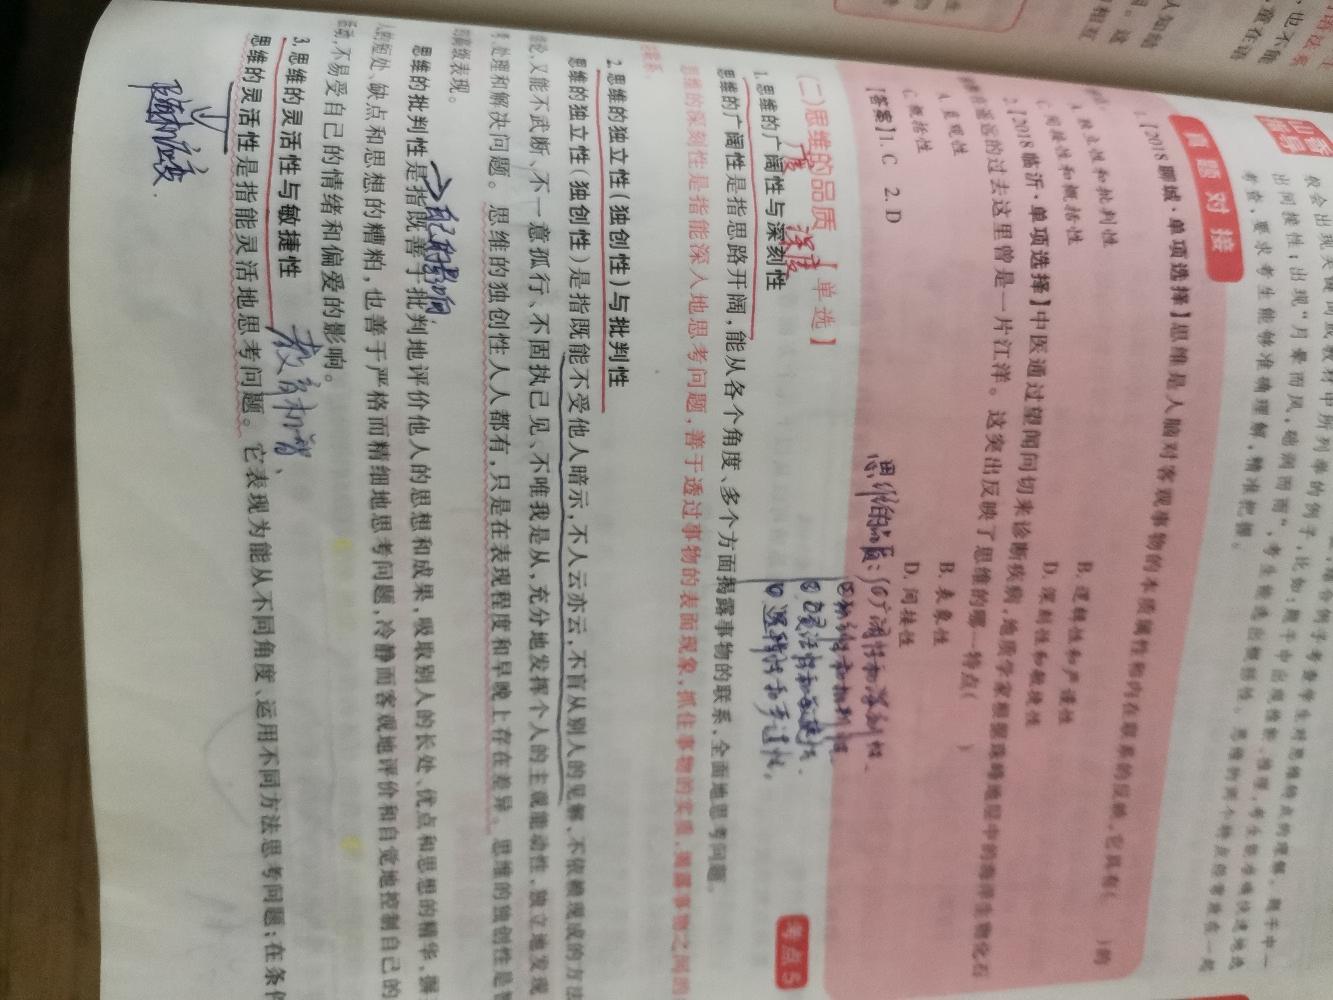 山香
指导
般会出现关键词或教材中所列举的例子,比如:题干中
出间接性;出现“月晕而风,础润而雨”,考生能选出概括性。思维的两个特点经常放在一起
考查,要求考生能够准确理解,精准把握。
真题对接
1.【2018聊城·单项选择】思维是人脑对客观事物的本质属性和内在联系的反映,它具有( )的
A.独立性和批判性
B.逻辑性和严谨性
C.间接性和概括性
D.深刻性和敏捷性
2.【2018临沂·单项选择】中医通过望闻问切来诊断疾病,地质学家根据珠峰地层中的海洋生物化石
在遥远的过去这里曾是一片江洋。这突出反映了思维的哪一特点( )
A.直观性
B.表象性
C.概括性
D.间接性
【答案】1.C 2.D
思维的品质:①广阔性和深刻性、
②独创性和批判性
③灵活性和敏捷性、
④逻辑性和严谨性。
(二)思维的品质【单选】
考点5
广度 深度
1.思维的广阔性与深刻性
思维的广阔性是指思路开阔,能从各个角度、多个方面揭露事物的联系,全面地思考问题。
思维的深刻性是指能深入地思考问题,善于透过事物的表面现象,抓住事物的实质,揭露事物之间的
联系。
2.思维的独立性(独创性)与批判性
思维的独立性(独创性)是指既能不受他人暗示,不人云亦云,不盲从别人的见解、不依赖现成的方法
论,又能不武断、不一意孤行、不固执己见、不唯我是从,充分地发挥个人的主观能动性,独立地发现
处理和解决问题。思维的独创性人人都有,只是在表现程度和早晚上存在差异。思维的独创性是智
的高级表现。
→自己的影响
思维的批判性是指既善于批判地评价他人的思想和成果,吸取别人的长处、优点和思想的精华,摒
人的短处、缺点和思想的糟粕,也善于严格而精细地思考问题,冷静而客观地评价和自觉地控制自己的
活动,不易受自己的情绪和偏爱的影响。
3.思维的灵活性与敏捷性
教育机智、
思维的灵活性是指能灵活地思考问题。它表现为能从不同角度、运用不同方法思考问题;在条件
随机应变.